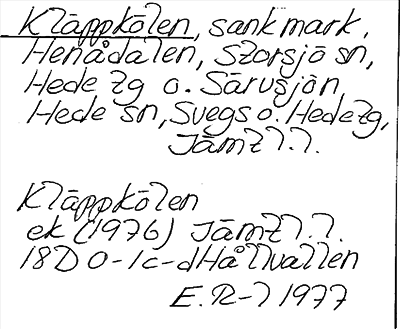 Kläppkölen, sankmark,
Henådalen, Storsjö sn,
Hede tg o. Särvsjön,
Hede sn, Svegs o. Hede tg,
Jämtl.l.
Kläppkölen
ek (1976) Jämtl.l.
18D 0-1c-d Hållvallen
E.R-l 1977